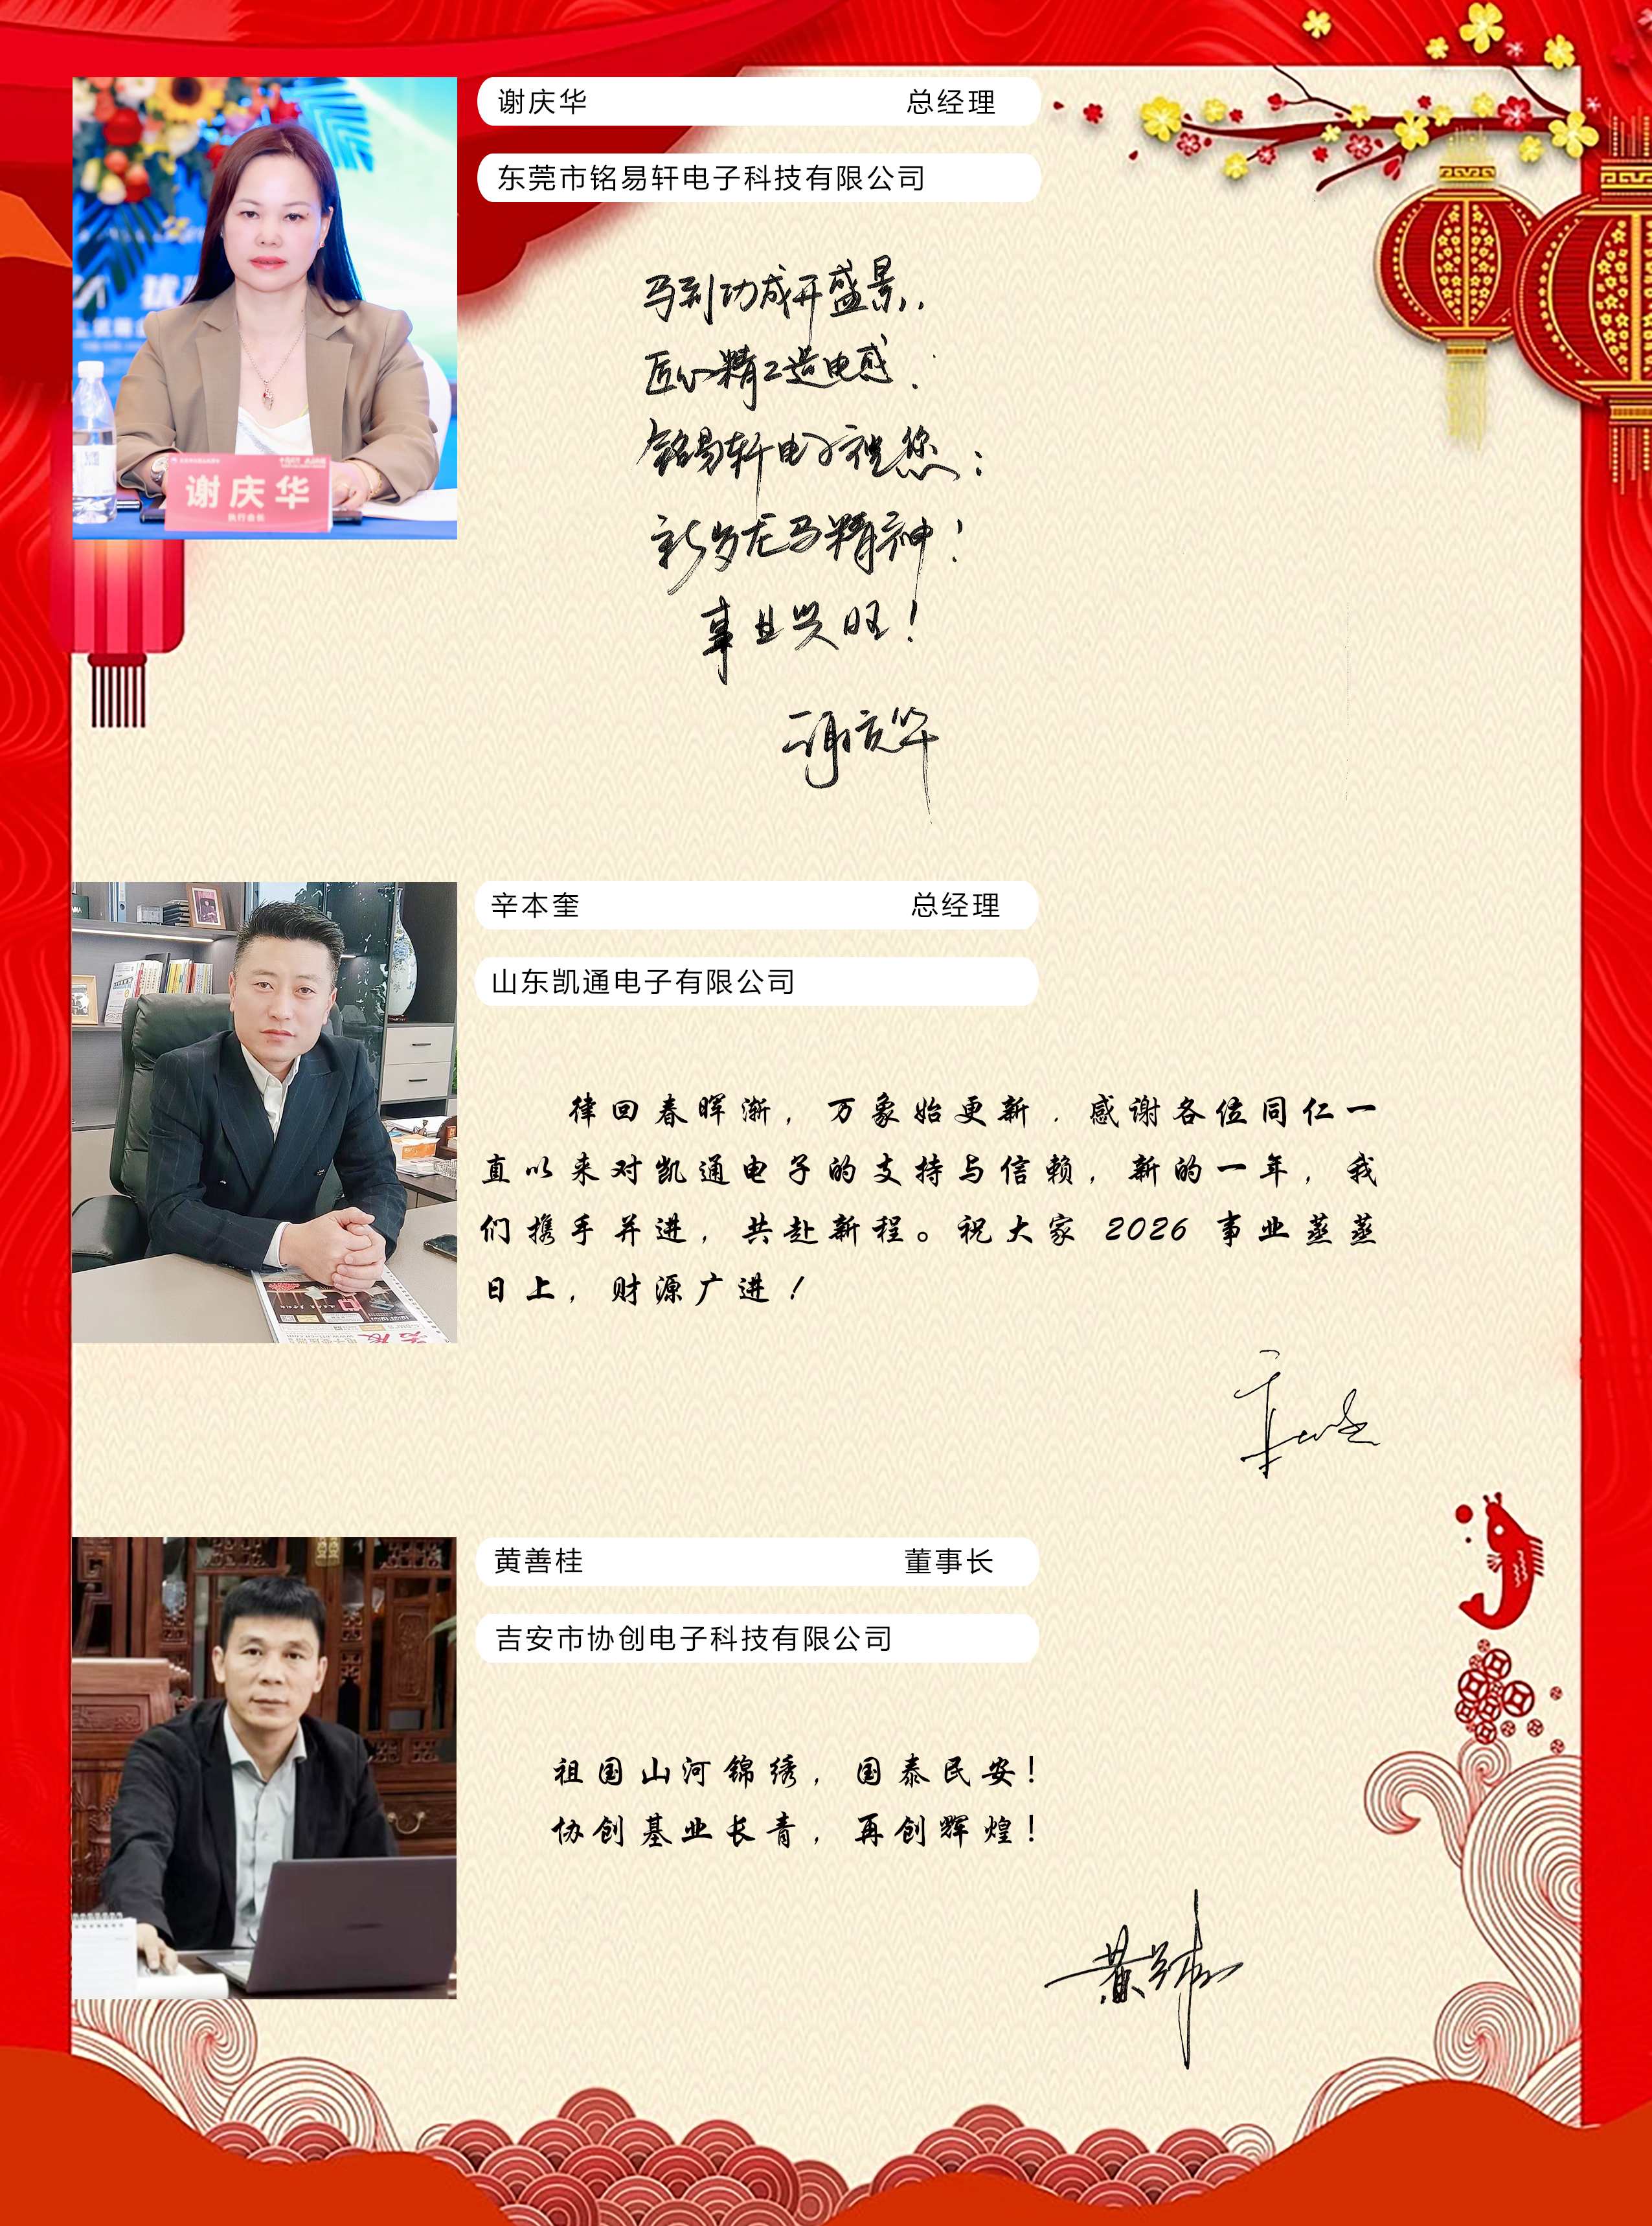 谢庆华 总经理
东莞市铭易轩电子科技有限公司
马到功成开盛景,
匠心精工造电感.
铭易轩电子祝您:
新岁龙马精神!
事业兴旺!
谢庆华
谢庆华
执行会长
辛本奎 总经理
山东凯通电子有限公司
律回春晖渐，万象始更新．感谢各位同仁一
直以来对凯通电子的支持与信赖，新的一年，我
们携手并进，共赴新程。祝大家 2026 事业蒸蒸
日上，财源广进！
黄善桂 董事长
吉安市协创电子科技有限公司
祖国山河锦绣，国泰民安！
协创基业长青，再创辉煌！